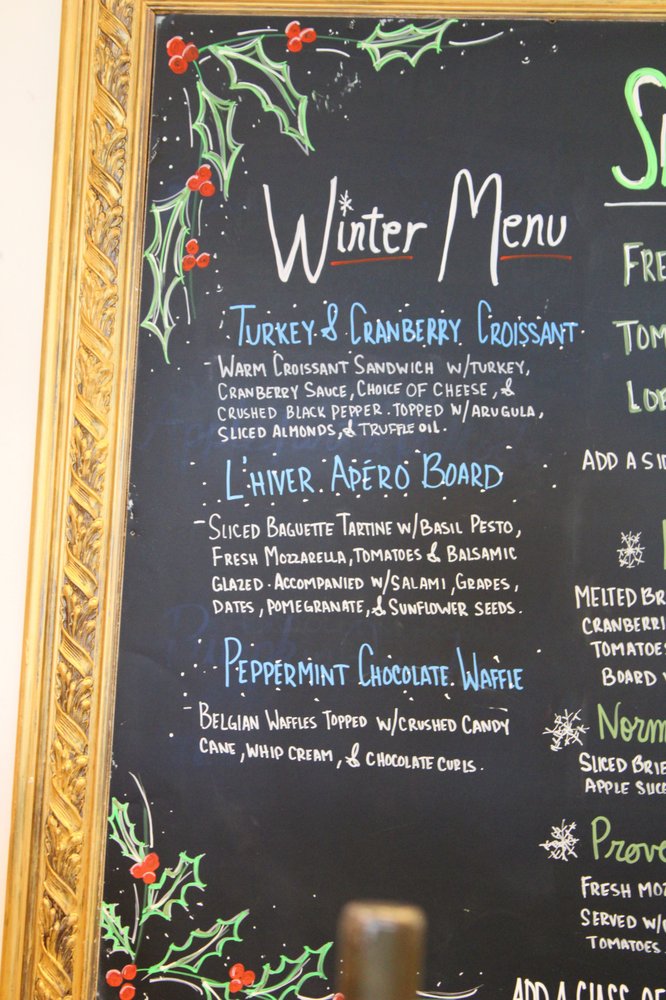 Winter Menu
Turkey & Cranberry Croissant
- Warm Croissant Sandwich w/Turkey,
Cranberry Sauce, Choice of Cheese, &
Crushed Black Pepper. Topped w/Arugula,
Sliced Almonds, & Truffle Oil.
L'hiver Apéro Board
- Sliced Baguette Tartine w/Basil Pesto,
Fresh Mozzarella, Tomatoes & Balsamic
Glazed. Accompanied w/Salami, Grapes,
Dates, Pomegranate, & Sunflower Seeds.
Peppermint Chocolate Waffle
- Belgian Waffles Topped w/Crushed Candy
Cane, Whip Cream, & Chocolate Curls.
Add a Si
Melted Br
Cranberri
Tomatoes
Board
Norm
Sliced Brie
Apple
Prove
Fresh Moz
Served w/
Tomatoes
Add a Glass of